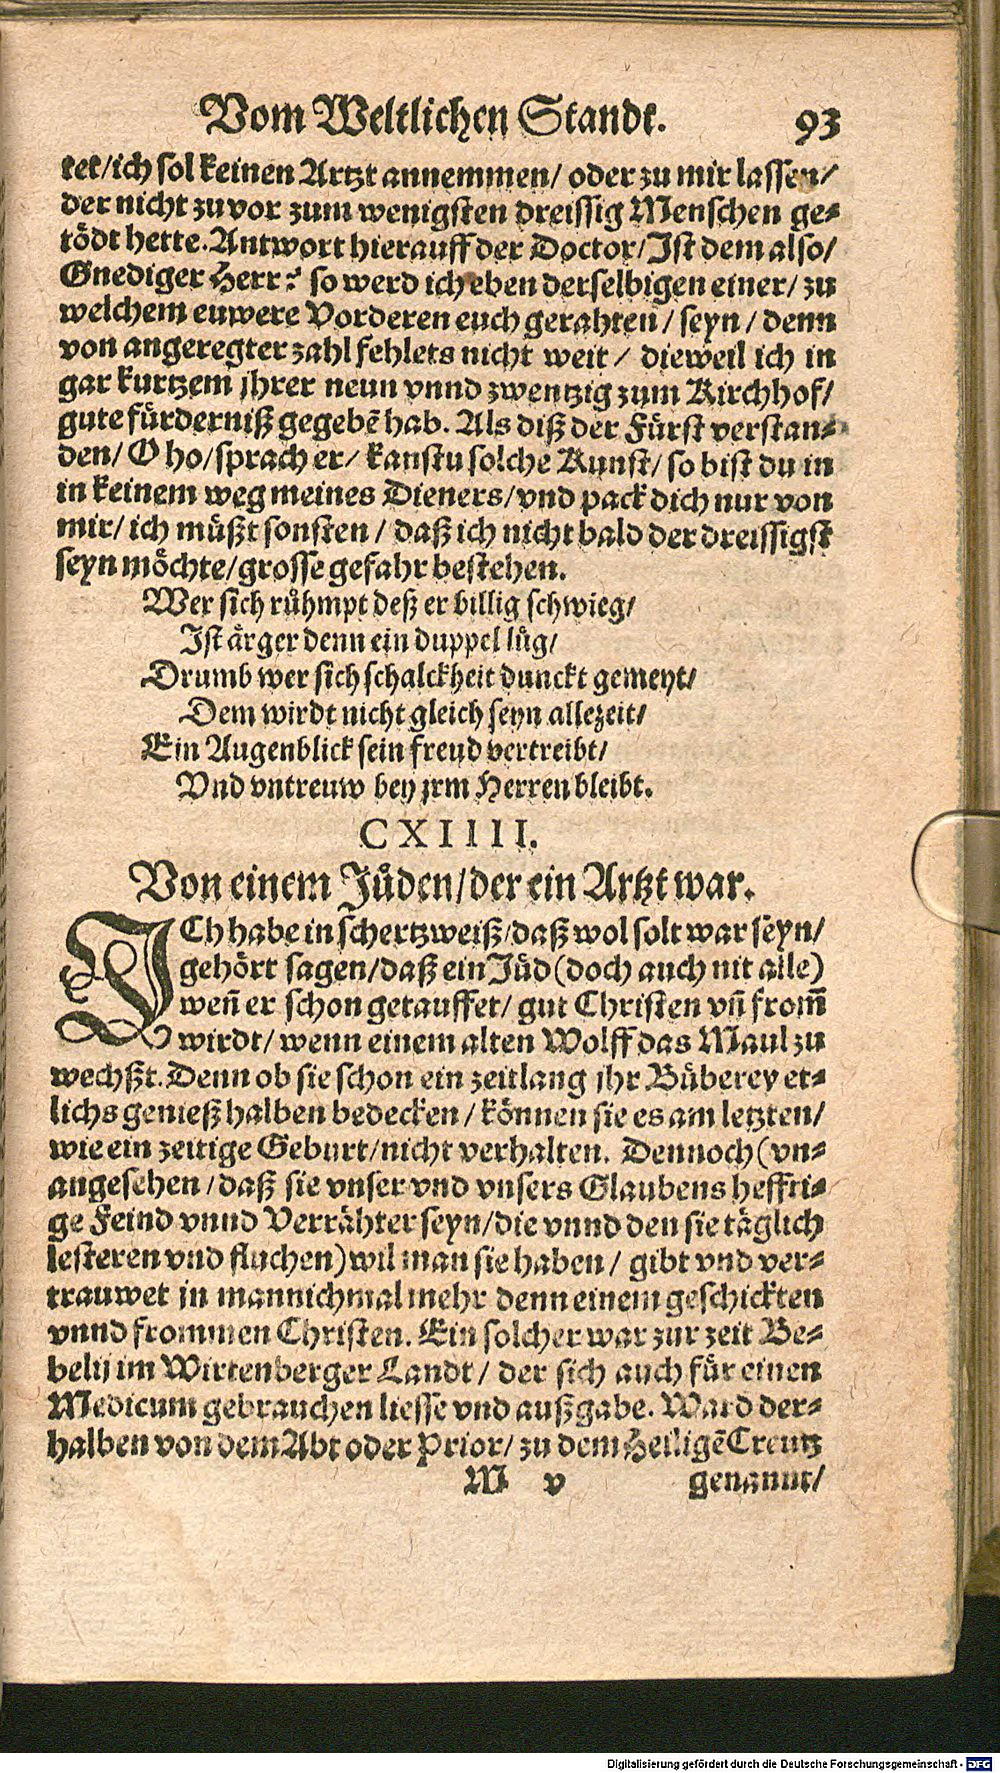 Vom Weltlichen Standt. 93
tet/ich sol keinen Artzt annemmen/ oder zu mir lassen/
der nicht zuvor zum wenigsten dreissig Menschen ge⸗
tödt hette. Antwort hierauff der Doctor/Ist dem also/
Gnediger Herr? so werd ich eben derselbigen einer/ zu
welchem euwere Vorderen euch gerahten/ seyn/ denn
von angeregter zahl fehlets nicht weit/ dieweil ich in
gar kurtzem jhrer neun vnnd zwentzig zum Kirchhof/
gute fürderniß gegebē hab. Als diß der Fürst verstan⸗
den/ O ho/sprach er/ kanstu solche Kunst/ so bist du in
in keinem weg meines Dieners/vnd pack dich nur von
mir/ ich müßt sonsten/ daß ich nicht bald der dreissigst
seyn möchte/grosse gefahr bestehen.
Wer sich rühmpt deß er billig schwieg/
Ist ärger denn ein duppel lüg/
Drumb wer sich schalckheit dunckt gemeyt/
Dem wirdt nicht gleich seyn allezeit/
Ein Augenblick sein freud vertreibt/
Vnd vntreuw bey jrm Herren bleibt.
CXIIII.
Von einem Jüden/der ein Artzt war.
ICh habe in schertzweiß/daß wol solt war seyn/
gehört sagen/daß ein Jüd (doch auch nit alle)
weñ er schon getauffet/ gut Christen vñ from̃
wirdt/ wenn einem alten Wolff das Maul zu
wechßt. Denn ob sie schon ein zeitlang jhr Büberey et⸗
lichs genieß halben bedecken/ können sie es am letzten/
wie ein zeitige Geburt/nicht verhalten. Dennoch (vn⸗
angesehen/daß sie vnser vnd vnsers Glaubens hefftī⸗
ge Feind vnnd Verrähter seyn/die vnnd den sie täglich
lesteren vnd fluchen) wil man sie haben/ gibt vnd ver⸗
trauwet in mannichmal mehr denn einem geschickten
vnnd frommen Christen. Ein solcher war zur zeit Be⸗
belij im Wirtenberger Landt/ der sich auch für einen
Medicum gebrauchen liesse vnd außgabe. Ward der⸗
halben von dem Abt oder Prior/ zu dem Heiligē Creutz
M v genannt/
Digitalisierung gefördert durch die Deutsche Forschungsgemeinschaft - DFG